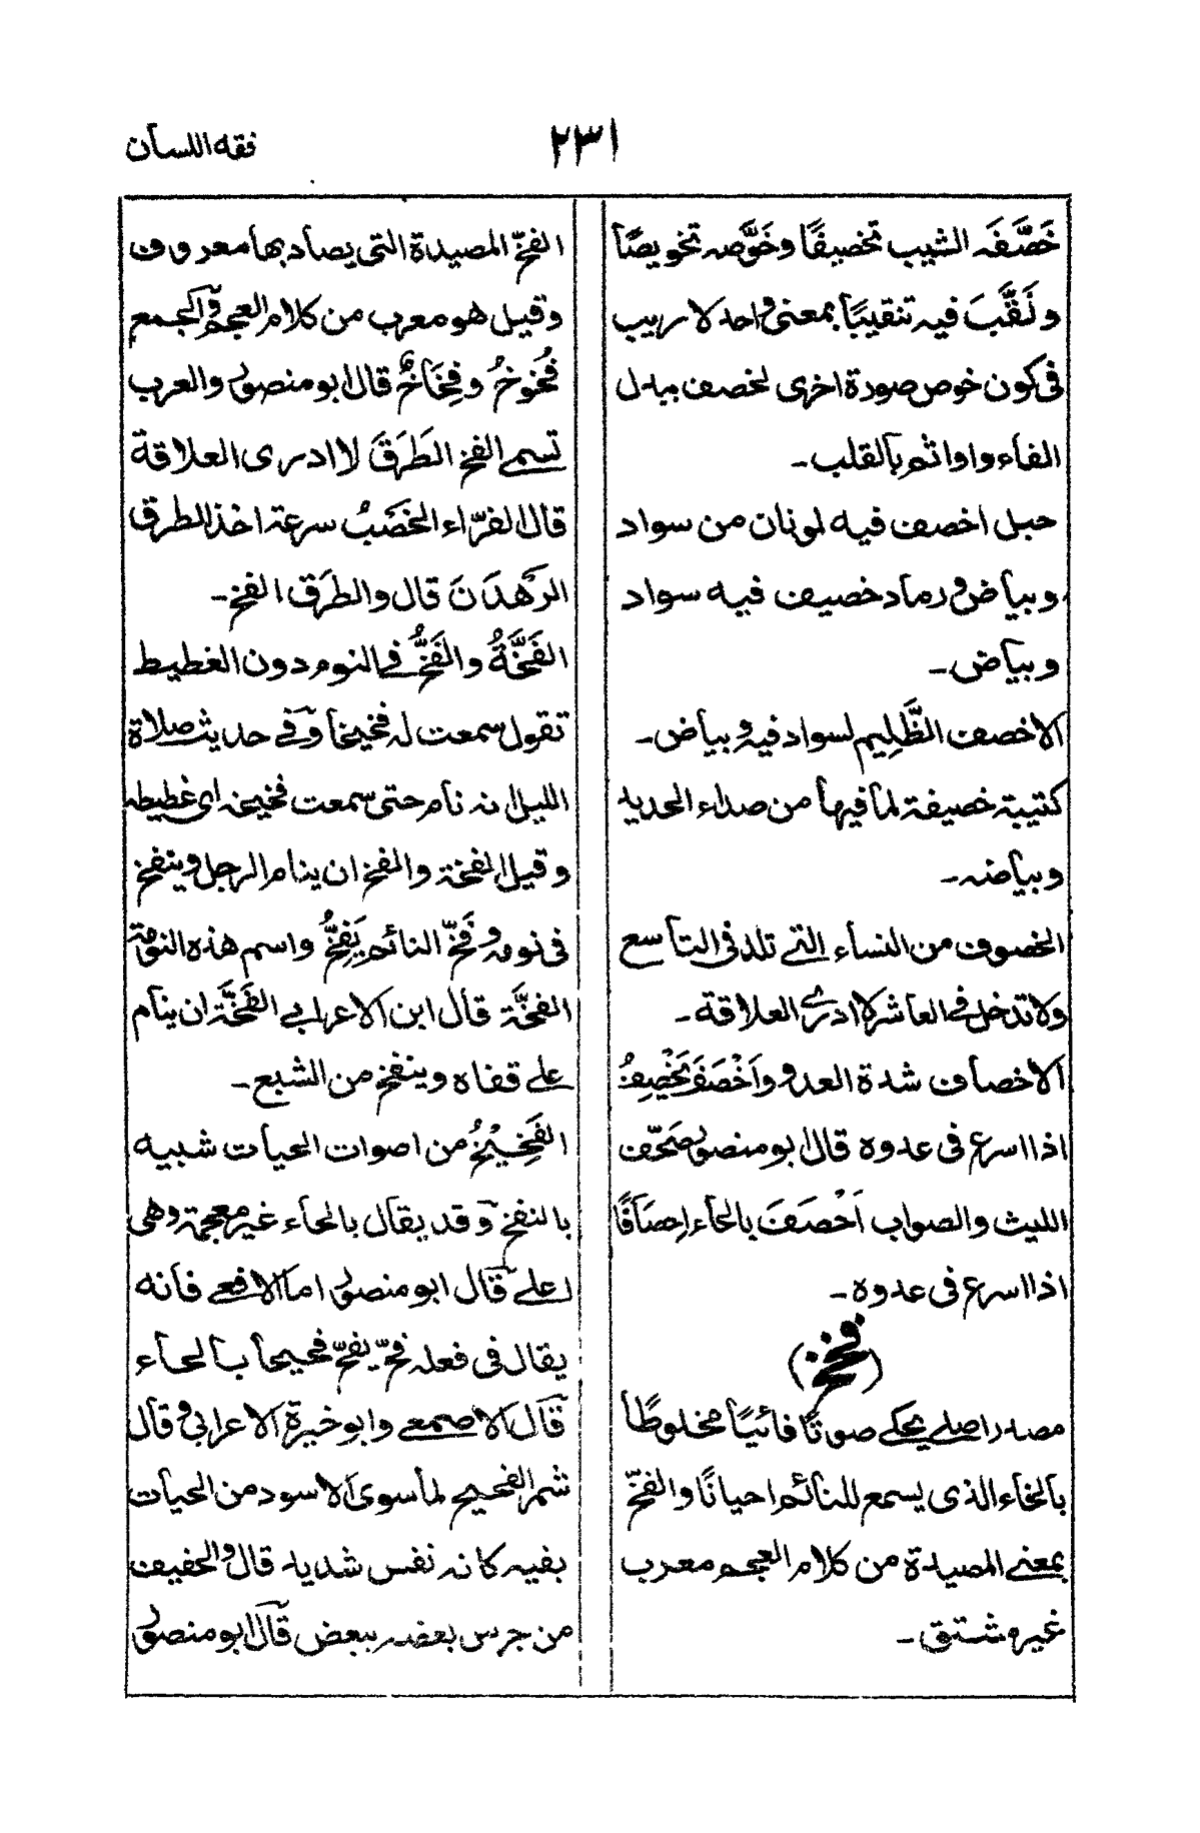 فقه اللسان
٢٣١
خَصَّفَه الشيب تخصيفًا وخَوَّصه تخويصًا
ونَقَّبَ فيه تنقيبًا بمعنى واحد لا ريب
فى كون خوص صورة اخرى لخصف ببدل
الفاء واوا ثم بالقلب۔
حبل اخصف فيه لونان من سواد
وبياض ورماد خصيف فيه سواد
وبياض۔
الاخصف الظَّلِيم لسواد فيه وبياض۔
كتيبة خصيفة لما فيها من صداء الحديد
وبياضه۔
الخصوف من النساء التى تلد فى التاسع
ولا تدخل فى العاشر لا ادرى العلاقة۔
الاخصاف شدة العدو واَخْصَفَ يُخْصِفُ
اذا اسرع فى عدوه قال ابو منصور صحّف
الليث والصواب اَحْصَفَ بالحاء اِحصَافًا
اذا اسرع فى عدوه۔
(فخخ)
مصدر اصلى يحكى صوتًا فائيًا مخلوطًا
بالخاء الذى يسمع للنائم احيانًا والفخّ
بمعنى المصيدة من كلام العجم معرب
غير مشتق۔
الفخّ المصيدة التى يصاد بها معروف
وقيل هو معرب من كلام العجم والجمع
فُخوخُ وفِخَاخٌ قال ابو منصور والعرب
تسمى الفخ الطَرَقَ لا ادرى العلاقة
قال الفرّاء الخضَبُ سرعة اخذ الطرق
الرَهْدَنَ قال والطَرَق الفخ۔
الفَخَّةُ والفَخُّ فى النوم دون الغطيط
تقول سمعت له فخيخا وفى حديث صلاة
الليل انه نام حتى سمعت فخيخه اى غطيطه
وقيل الفخة والفخ ان ينام الرجل وينفخ
فى نومه وفَخّ النائم يَفِخُّ واسم هذه النومة
الفخَّة قال ابن الاعرابى الفَخَّة ان ينام
على قفاه وينفخ من الشبع۔
الفَخِيْخُ من اصوات الحيات شبيه
بالنفخ وقد يقال بالحاء غير معجمة وهى
اعلى قال ابو منصور اما الافعى فانه
يقال فى فعله فحّ يفحّ فحيحا بالحاء
قال الاصمعى وابو خيرة الاعرابى وقال
شمر الفحيح لما سوى الاسود من الحيات
بفيه كانه نفس شديد قال والحفيف
من جرس بعضه ببعض قال ابو منصور